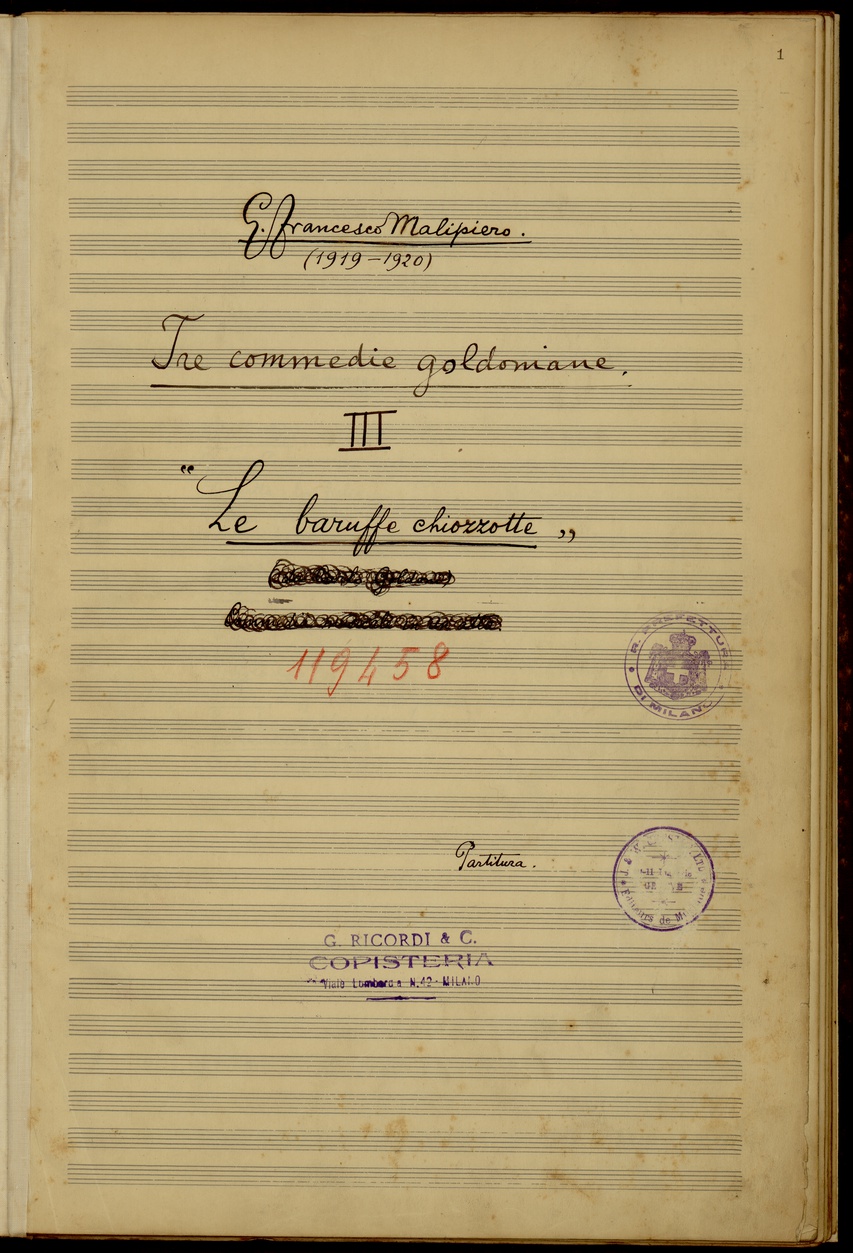 1
G. Francesco Malipiero.
(1919–1920)
Tre commedie goldoniane.
III
“Le baruffe chiozzotte„
119458
R. PREFETTURA
DI MILANO
Partitura.
Editeurs de
G. RICORDI & C.
COPISTERIA
Viale Lombardia N.42 - MILANO